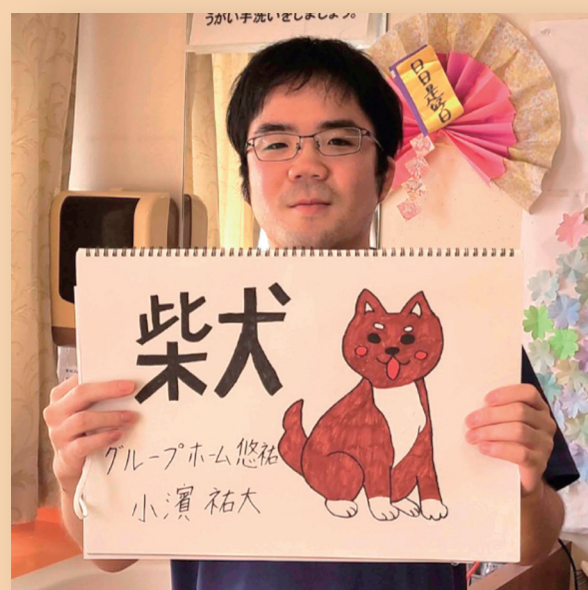 うがい手洗いをしましょう。
日日是好日
柴犬
グループホーム悠祐
小濱 祐大